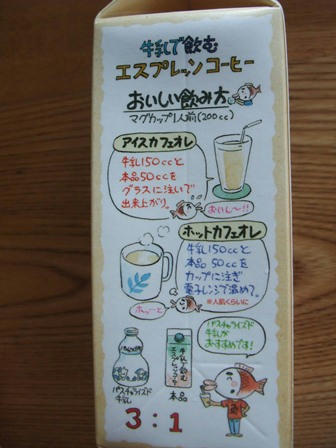 牛乳で飲む
エスプレッソコーヒー
おいしい飲み方
マグカップ1人前(200cc)
アイスカフェオレ
牛乳150ccと
本品50ccを
グラスに注いで
出来上がり。
おいし〜!!
ホットカフェオレ
牛乳150ccと
本品50ccを
カップに注ぎ
電子レンジで温めて。
※人肌くらいに
ホッ〜と
パスチャライズド
牛乳が
おすすめです!
牛乳で飲む
エスプレッソコーヒー
パスチャライズド
牛乳
本品
3:1